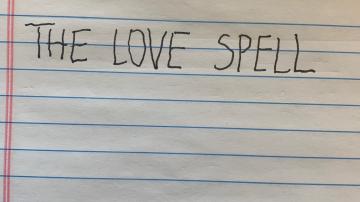 THE LOVE SPELL